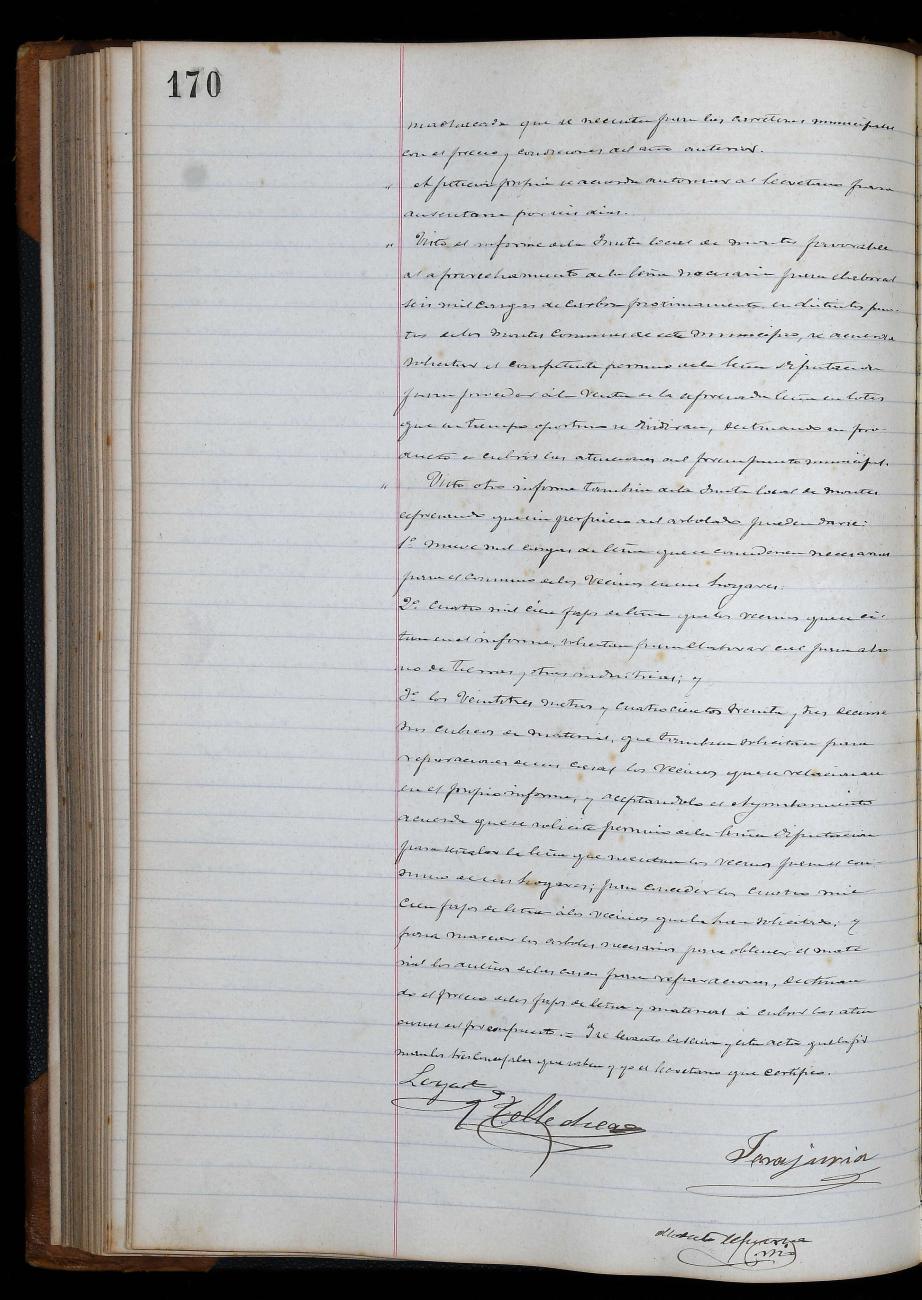 170
machacada que se necesita para las carreteras municipales
con el precio y condiciones del año anterior.
" A peticion propia se acuerda autorizar al Secretario para
ausentarse por seis dias.
" Visto el informe de la Junta local de montes favorable
al aprovechamiento de la leña necesaria para elaborar
seis mil cargas de carbon proximamente en distintos pun-
tos de los montes comunes de este municipio, se acuerda
solicitar el competente permiso de la Excma Diputacion
para proceder á la venta de la expresada leña en lotes
que en tiempo oportuno se dividiran, destinando su pro-
ducto a cubrir las atenciones del presupuesto municipal.
" Visto otro informe tambien de la Junta local de montes
expresando que sin perjuicio del arbolado pueden darse:
1º nueve mil cargas de leña que se consideran necesarias
para el consumo de los vecinos en sus hogares.
2º Cuatro mil cien fajos de leña que los vecinos que se ci-
tan en el informe, solicitan para elaborar cal para abo
no de tierras y otras industrias; y
3º los veintitres metros y cuatrocientos treinta y tres decime
tros cubicos de material, que tambien solicitan para
reparaciones en sus casas los vecinos que se relacionan
en el propio informe, y aceptandolo el Ayuntamiento
acuerda que se solicite permiso de la Excma Diputacion
para señalar la leña que necesitan los vecinos para el con-
sumo de sus hogares; para conceder los cuatro mil
cien fajos de leña á los vecinos que la han solicitado; y
para marcar los arboles necesarios para obtener el mate
rial los dueños de las casas para reparaciones, destinan
do el precio de los fajos de leña y material á cubrir las aten
ciones del presupuesto. = Y se levantó la sesion y esta acta que la fir
man los tres Concejales que saben y yo el Secretario que certifico.
Loyarte
Telleduea
Tarajuria